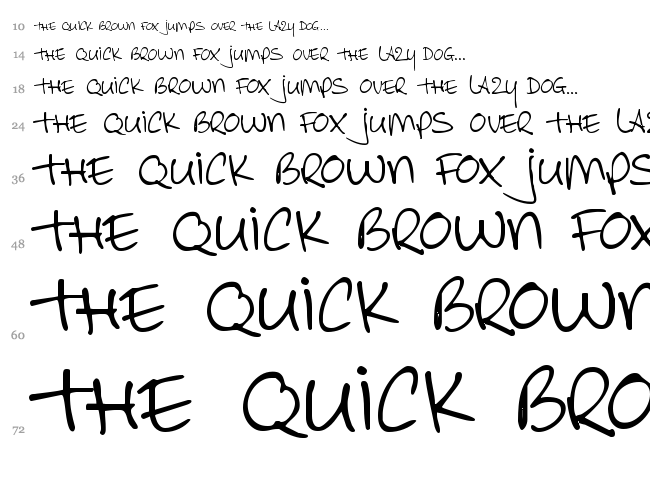 10 THE QUICK BROWN FOX jUMPS OVER THE LAZY DOG...
14 THE QUICK BROWN FOX jUMPS OVER THE LAZY DOG...
18 THE QUICK BROWN FOX jUMPS OVER THE LAZY DOG...
24 THE QUICK BROWN FOX jUMPS OVER THE LAZ
36 THE QUICK BROWN FOX jUMPS
48 THE QUICK BROWN FOX
60 THE QUICK BROWN
72 THE QUICK BRO